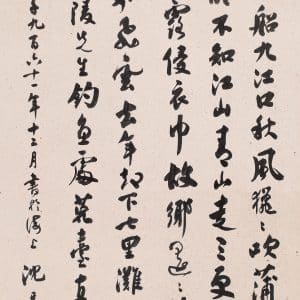 船九江口秋風獵〻吹蒲
不知江山青山走三更
露侵衣巾故鄉
雲去年却下七里灘
陵先生釣魚處荒臺直
九百六十一年十二月書於海上沈